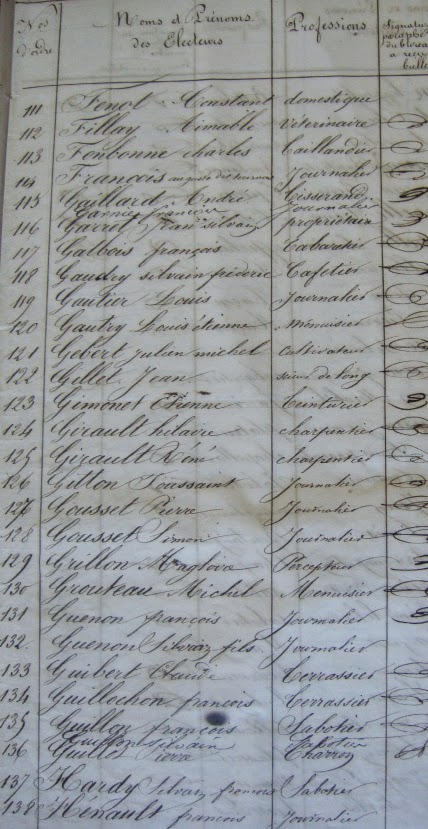 Nos d'ordre Noms et Prénoms des Electeurs Professions Signature
111 Fenot Constant domestique
112 Fillay Aimable Vétérinaire
113 Fonbonne charles Taillandier
114 François auguste Journalier
115 Gaillard André Tisserand
Garnier françois Journalier
116 Garrot Jean Silvain propriétaire
117 Galbois français Cabaretier
118 Gaudry silvain fréderic Cafetier
119 Gautier Louis Journalier
120 Gautry Louis étienne Menuisier
121 Gebert Julien michel Cultivateur
122 Gillet Jean scieur de long
123 Gimonet Etienne Teinturier
124 Girault hilaire charpentier
125 Girault René charpentier
126 Gitton Toussaint Journalier
127 Gousset Pierre Journalier
128 Gousset Simon Journalier
129 Grillon Magloire Percepteur
130 Grouteau Michel Menuisier
131 Guenon françois Journalier
132. Guenon Silvain fils Journalier
133 Guibert Claude Terrassier
134 Guillochon françois Terrassier
135 Guillon françois Sabotier
Guillon Silvain Sabotier
136 Guillot Pierre Charron
137 Hardy Silvain françois Sabotier
138 Henault françois Journalier